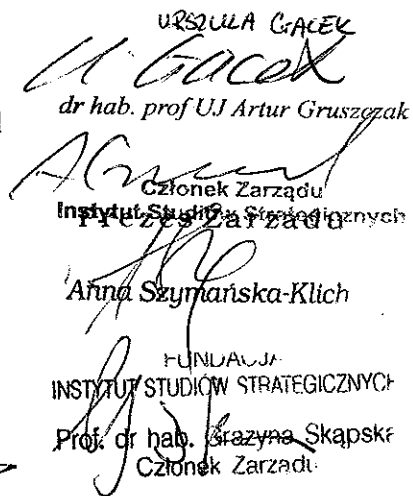 URSZULA GACEK
U. Gacek
dr hab. prof UJ Artur Gruszczak
Członek Zarządu
Instytut Studiów Strategicznych
Prezes Zarządu
Anna Szymańska-Klich
FUNDACJA
INSTYTUT STUDIÓW STRATEGICZNYCH
Prof. dr hab. Grażyna Skąpska
Członek Zarządu